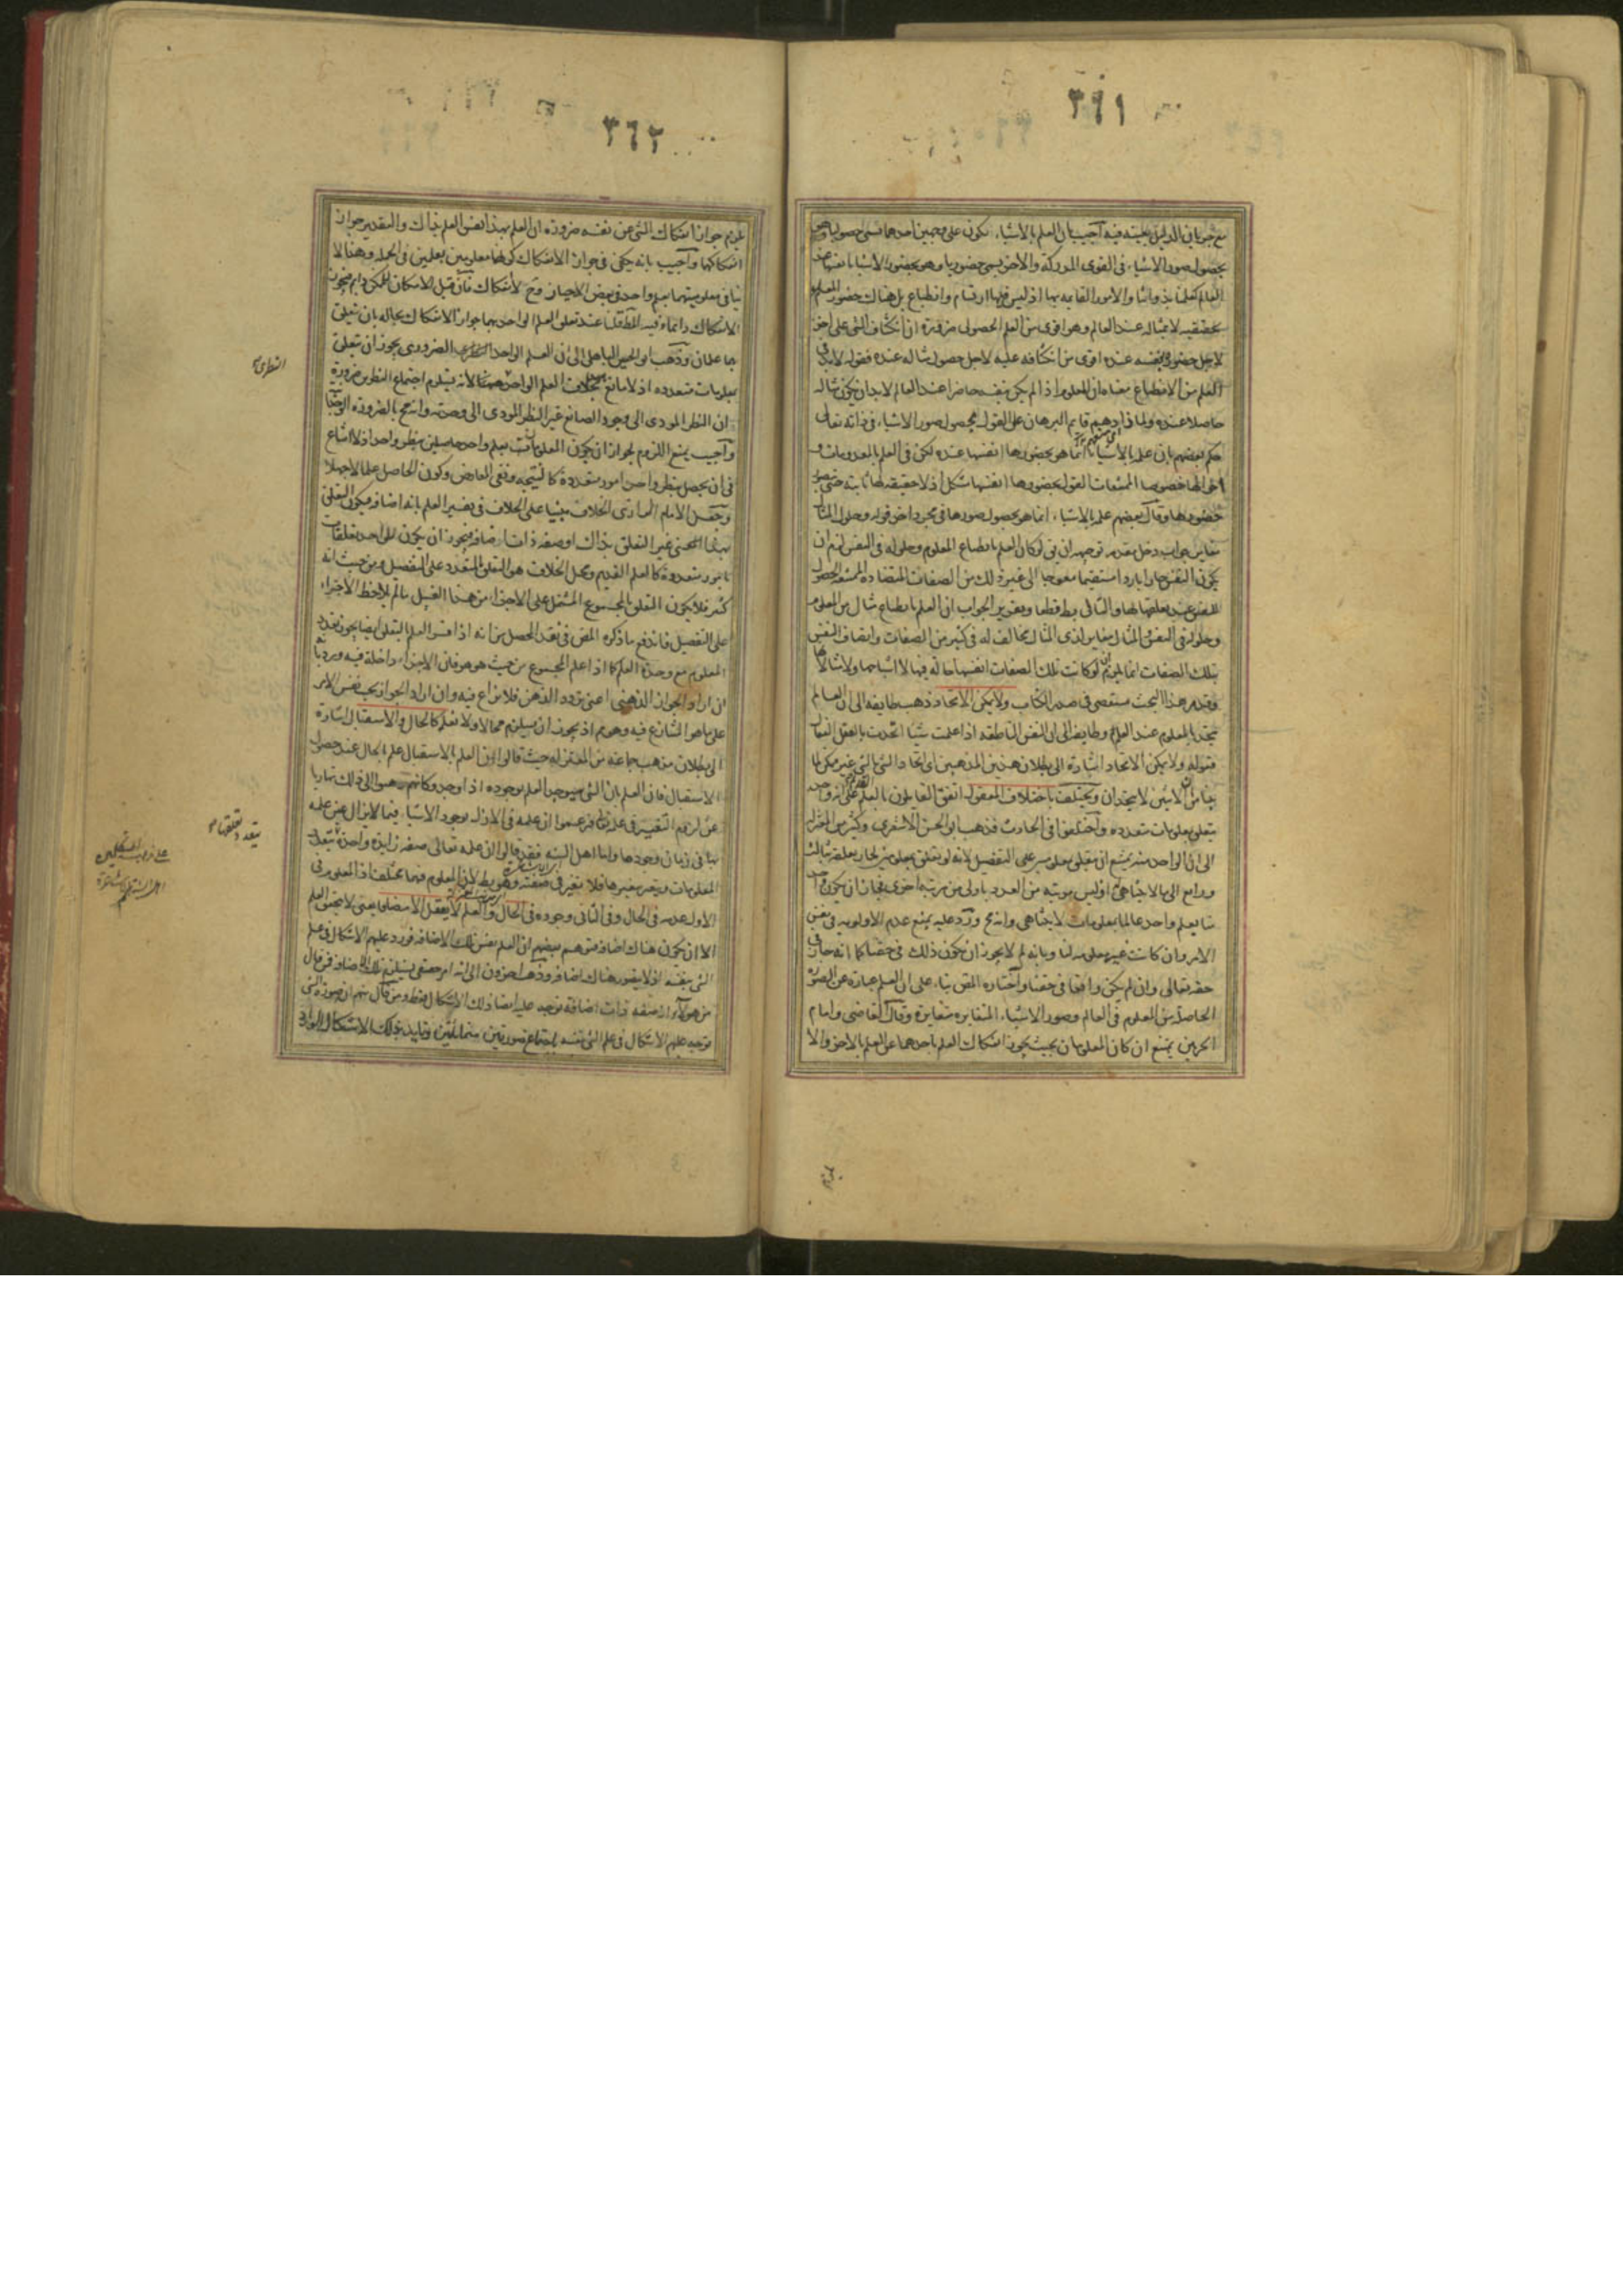 ٣٦١
مع جريان الدليل بعينه فيه اجيب بان العلم بالاشياء يكون على وجهين احدهما يسمى حصوليا وهو
بحصول صور الاشياء فى القوى المدركة والاخر يسمى حضوريا وهو بحضور الاشياء انفسها عند
العالم كعلمنا بذواتنا والامور القائمه بها اذ ليس فيها ارتسام وانطباع بل هناك حضور المعلوم
بحقيقته لا بمثاله عند العالم وهو اقوى من العلم الحصولى ضرورة ان انكشاف الشى على اخر
لاجل حضوره بنفسه عنده اقوى من انكشافه عليه لاجل حصول مثاله عنده فقوله لابد فى
العلم من الانطباع معناه ان المعلوم اذا لم يكن بنفسه حاضرا عند العالم لابد ان يكون مثاله
حاصلا عنده ولما قام البرهان على القول بحصول صور الاشياء فى ذاته تعالى
حكم بعضهم بان علمه بالاشياء انما هو بحضورها انفسها عنده لكن فى العلم بالمعدومات و
خصوصا الممتنعات القول بحضورها انفسها مشكل اذ لا حقيقه لها ثابته حتى يتصور
حضورها وقال بعضهم علمه بالاشياء انما هو بحصول صورها فى مجرد اخر قوله وحلول المثال
مغاير جواب دخل مقدر توجيهه ان يق لو كان العلم بانطباع المعلوم وحلوله فى النفس لزم ان
يكون النفس حارا باردا مستقيما معوجا الى غير ذلك من الصفات المتضادة الممتنعة الحصول
للنفس عند تعلقها بها والتالى بط قطعا وتقرير الجواب ان العلم بانطباع مثال من المعلوم
وحلوله فى النفس والمثال مغاير لذى المثال مخالف له فى كثير من الصفات واتصاف النفس
بتلك الصفات انما يلزم ان لو كانت تلك الصفات انفسها حالة فيها لا اشباحها ولا مثالاتها
وقد مر هذا البحث مستقصى فى صدر الكتاب ولا يمكن الاتحاد ذهب طايفه الى ان العالم
يتحد بالمعلوم عند العلم وطايفه الى ان النفس الناطقه اذا علمت شيئا اتحدت بالعقل الفعال
فقوله ولا يمكن الاتحاد اشارة الى بطلان هذين المذهبين اى اتحاد الشى بالشى غير ممكن لما
بينا من ان الاثنين لا يتحدان ويختلف باختلاف المعقول اتفق القايلون بالعلم القديم على انه واحد
يتعلق بمعلومات متعدده واختلفوا فى الحادث فذهب ابو الحسن الاشعرى وكثير من المعتزله
الى ان الواحد منه يمتنع ان يتعلق بمعلومين على التفصيل لانه لو تعلق بمعلومين لجاز تعلقه بثالث
ورابع الى ما لا يتناهى اذ ليس مرتبه من العدد باولى من مرتبة اخرى فجاز ان يكون احد
منا بعلم واحد عالما بمعلومات لا يتناهى وانه مح ورد عليه بمنع عدم الاولويه فى نفس
الامر وان كانت غير معلومه لنا وبانه لم لا يجوز ان يكون ذلك فى حقنا كما انه جاز فى
حقه تعالى وان لم يكن واقعا فى حقنا واختاره المص بناء على ان العلم عبارة عن الصورة
الحاصلة من المعلوم فى العالم وصور الاشياء المتغايره متغايرة وقال القاضى وامام
الحرمين يمتنع ان كان المعلومان بحيث يجوز انفكاك العلم باحدهما عن العلم بالاخر والا
٣٦٢
يلزم جواز انفكاك الشى عن نفسه ضرورة ان العلم بهذا نفس العلم بذاك والتقدير جواز
انفكاكهما واجيب بانه يكفى فى جواز الانفكاك كونهما معلومين بعلمين فى الجمله وهذا لا
ينافى معلوميتهما بعلم واحد فى بعض الاحيان وح لا انفكاك فان قيل الامكان للممكن دايم فيجوز
الانفكاك دائما وفيه المط قلنا عند تعلق العلم الواحد بهما جواز الانفكاك بحاله بان يتعلق
بهما علمان وذهب ابو الحسن الباهلى الى ان العلم الواحد الضرورى يجوز ان يتعلق
بمعلومات متعدده اذ لا مانع بخلاف العلم الواحد لانه يستلزم اجتماع النظرين ضرورة
ان النظر المودى الى وجود الصانع غير النظر المودى الى وحدته وانه مح بالضرورة الوجدانية
واجيب بمنع اللزوم لجواز ان يكون المعلومات بعلم واحد حاصلين بنظر واحد اذ لا امتناع
فى ان يحصل بنظر واحد امور متعددة كالنتيجه ونفى المعارض وكون الحاصل علما لا جهلا
وجعل الامام الرازى الخلاف مبنيا على الخلاف فى تفسير العلم بانه اضافه فيكون التعلق
بهذا غير التعلق بذاك او صفه ذات اضافه فيجوز ان يكون للواحد تعلقات
بامور متعددة كالعلم القديم ومحل الخلاف هو التعلق بالمتعدد على التفصيل ومن حيث انه
كثير فلا يكون التعلق بالمجموع المشتمل على الاجزاء من هذا القبيل ما لم يلاحظ الاجزاء
على التفصيل فاندفع ما ذكره المص فى نقد المحصل من انه اذا فسر العلم بالتعلق ايضا يجوز تعدد
المعلوم مع وحدة العلم كما اذا علم المجموع من حيث هو هو فان الاجزاء داخلة فيه
ان اراد الجواز الذهنى اعنى تردد الذهن فلا نزاع فيه وان اراد الجواز بحسب نفس الامر
على ما هو المتنازع فيه فهو مم اذ يجوز ان يستلزم محالا ولا نعلم كالحال والاستقبال اشارة
الى بطلان مذهب جماعه من المعتزله حيث قالوا ان العلم بالاستقبال علم بالحال عند حصول
الاستقبال فان العلم بان الشى سيوجد العلم بوجوده اذا وجد وكانهم ذهبوا الى ذلك تهاربا
عن لزوم التغيير فى علمه تعالى فزعموا ان علمه فى الازل بوجود الاشياء فيما لا يزال عين علمه
بها فى زمان وجودها واما اهل السنه فقد قالوا ان علمه تعالى صفه زايدة واحدة تتعلق
المعلومات ويتغير بتغيرها فلا تغير فى صفته وهو بط لان المعلوم فيهما مختلف اذ المعلوم فى
الاول عدمه فى الحال وفى الثانى وجوده فى الحال والعلم لا يعقل الا مضافا يعنى لا يتحقق العلم
الا ان يكون هناك اضافه فتوهم بعضهم ان العلم نفس تلك الاضافه فورد عليهم الاشكال فى علم
الشى بنفسه اذ لا يتصور هناك اضافه وذهب اخرون الى انه امر حقيقى يستلزم تلك الاضافه فمن قال
من هولاء انه صفه ذات اضافة توجه عليه ايضا ذلك الاشكال فقط ومن قال منهم انه صورة الشى
توجه عليهم الاشكال فى علم الشى بنفسه باجتماع صورتين متماثلتين
النظرى
يتعدد تعلقها